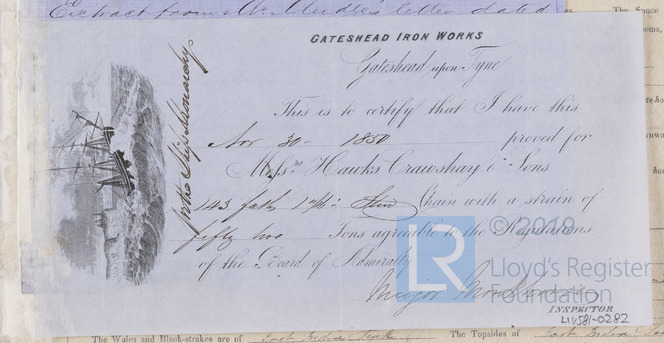 Extract from Mr letter dated
The Space
GATESHEAD IRON WORKS
Gateshead upon Tyne
This is to certify that I have this
Nov 30 - 1850 proved for
Messrs Hawks Crawshay & Sons
143 faths Chain with a strain of
fifty two Tons agreeable to the Regulations
of the Board of Admiralty
for the Ship Monarchy
INSPECTOR
LIV581-0282
LR
© 2019
Lloyd's Register
Foundation
The Wales and Black-strakes are of East India Teak
The Topsides of East India